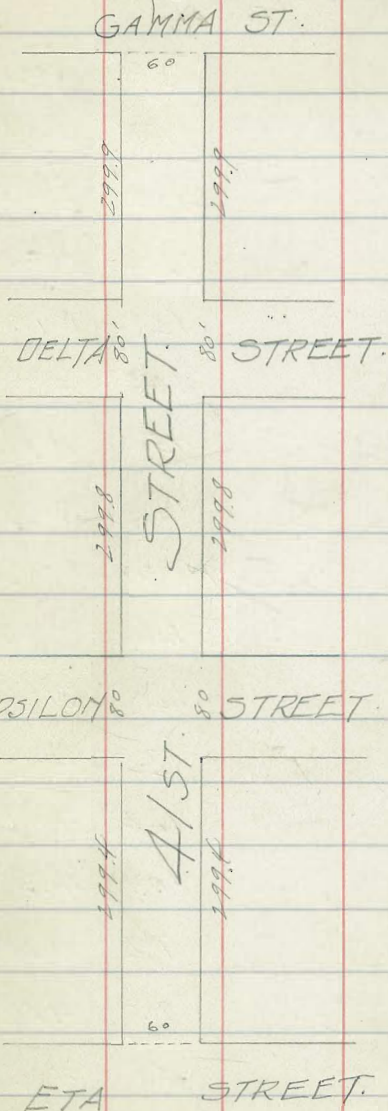 GAMMA ST.
60
299.9 299.9
DELTA 80' 80' STREET.
STREET.
299.8 299.8
PSILON 80 80 STREET
41ST.
299.4 299.4
60
ETA STREET.